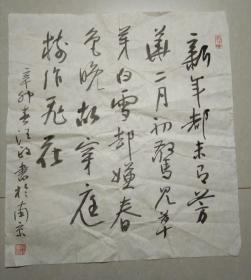 新年都未有芳
華二月初驚見草
芽白雪却嫌春
色晚故穿庭
樹作飛花
辛卯春汪政書於南京